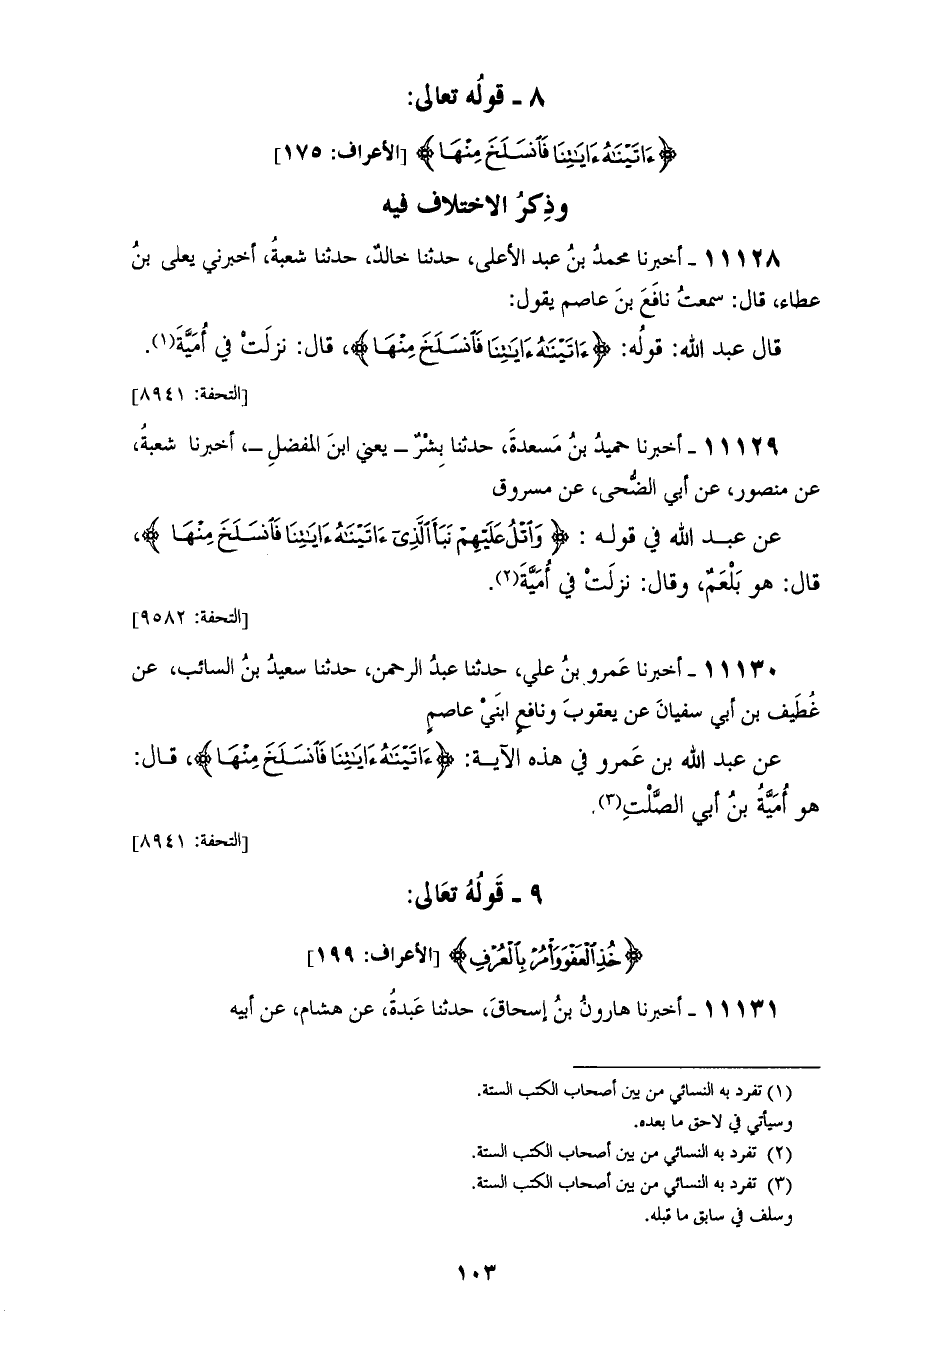 ٨ ـ قولُه تعالى:
﴿ءَاتَيْنَٰهُ ءَايَٰتِنَا فَٱنسَلَخَ مِنْهَا﴾ [الأعراف: ١٧٥]
وذِكرُ الاختلاف فيه
١١١٢٨ ـ أخبرنا محمدُ بنُ عبد الأعلى، حدثنا خالدٌ، حدثنا شعبةُ، أخبرني يعلى بنُ
عطاء، قال: سمعتُ نافعَ بنَ عاصم يقول:
قال عبد الله: قولُه: ﴿ءَاتَيْنَٰهُ ءَايَٰتِنَا فَٱنسَلَخَ مِنْهَا﴾، قال: نزلَتْ في أُمَيَّةَ(١).
[التحفة: ٨٩٤١]
١١١٢٩ ـ أخبرنا حميدُ بنُ مَسعدةَ، حدثنا بِشْرٌ ــ يعني ابنَ المفضلِ ــ، أخبرنا شعبةُ،
عن منصور، عن أبي الضُّحى، عن مسروق
عن عبـد الله في قولـه : ﴿وَٱتْلُ عَلَيْهِمْ نَبَأَ ٱلَّذِىٓ ءَاتَيْنَٰهُ ءَايَٰتِنَا فَٱنسَلَخَ مِنْهَا﴾،
قال: هو بَلْعَمٌ، وقال: نزلَتْ في أُمَيَّةَ(٢).
[التحفة: ٩٥٨٢]
١١١٣٠ ـ أخبرنا عَمرو بنُ علي، حدثنا عبدُ الرحمن، حدثنا سعيدُ بنُ السائب، عن
غُطَيف بن أبي سفيانَ عن يعقوبَ ونافعٍ ابنَيْ عاصمٍ
عن عبد الله بن عَمرو في هذه الآيـة: ﴿ءَاتَيْنَٰهُ ءَايَٰتِنَا فَٱنسَلَخَ مِنْهَا﴾، قـال:
هو أُمَيَّةُ بنُ أبي الصَّلْتِ(٣).
[التحفة: ٨٩٤١]
٩ ـ قَولُهُ تعَالى:
﴿خُذِ ٱلْعَفْوَ وَأْمُرْ بِٱلْعُرْفِ﴾ [الأعراف: ١٩٩]
١١١٣١ ـ أخبرنا هارونُ بنُ إسحاقَ، حدثنا عَبدةُ، عن هشام، عن أبيه
(١) تفرد به النسائي من بين أصحاب الكتب الستة.
وسيأتي في لاحق ما بعده.
(٢) تفرد به النسائي من بين أصحاب الكتب الستة.
(٣) تفرد به النسائي من بين أصحاب الكتب الستة.
وسلف في سابق ما قبله.
١٠٣